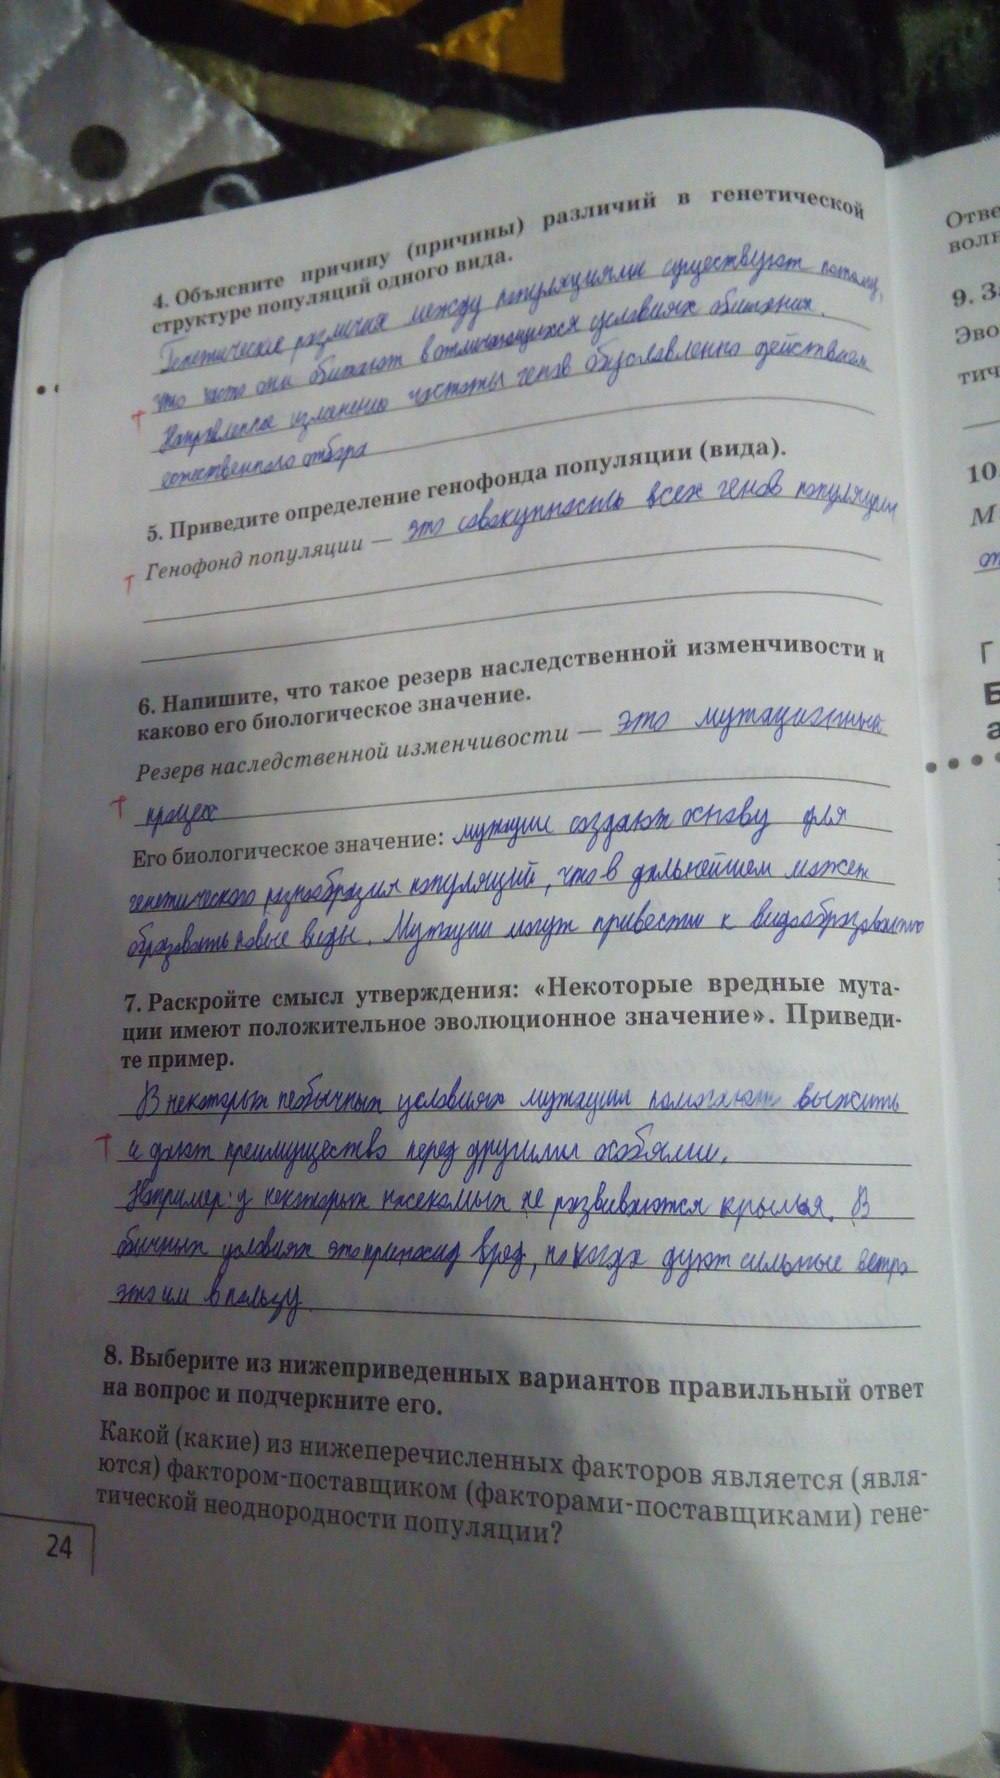 4. Объясните причину (причины) различий в генетической
структуре популяций одного вида.
Генетические различия между популяциями существуют потому,
что часто они обитают в отличающихся условиях обитания.
Направленное изменение частоты генов обусловленно действием
естественного отбора
5. Приведите определение генофонда популяции (вида).
Генофонд популяции — это совокупность всех генов популяции
6. Напишите, что такое резерв наследственной изменчивости и
каково его биологическое значение.
Резерв наследственной изменчивости — это мутационный
процесс
Его биологическое значение: мутации создают основу для
генетического разнообразия популяций, что в дальнейшем может
образовать новые виды. Мутации могут привести к видообразованию
7. Раскройте смысл утверждения: «Некоторые вредные мута-
ции имеют положительное эволюционное значение». Приведи-
те пример.
В некоторых необычных условиях мутации помогают выжить
и дают преимущество перед другими особями.
Например: у некоторых насекомых не развиваются крылья. В
обычных условиях это приносид вред, но когда дуют сильные ветра
это им в пользу
8. Выберите из нижеприведенных вариантов правильный ответ
на вопрос и подчеркните его.
Какой (какие) из нижеперечисленных факторов является (явля-
ются) фактором-поставщиком (факторами-поставщиками) гене-
тической неоднородности популяции?
24
Отве
волн
9. За
Эво
тич
10.
М
от
Г
Б
а